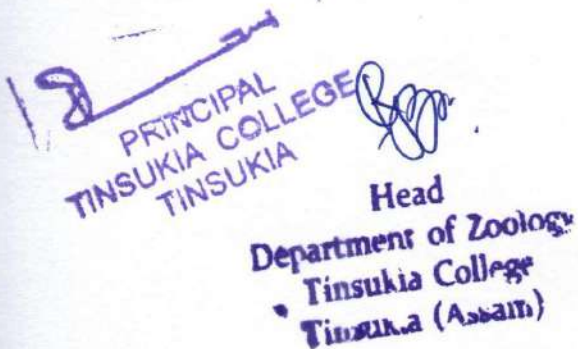 PRINCIPAL
TINSUKIA COLLEGE
TINSUKIA
Head
Department of Zoology
Tinsukia College
(Assam)